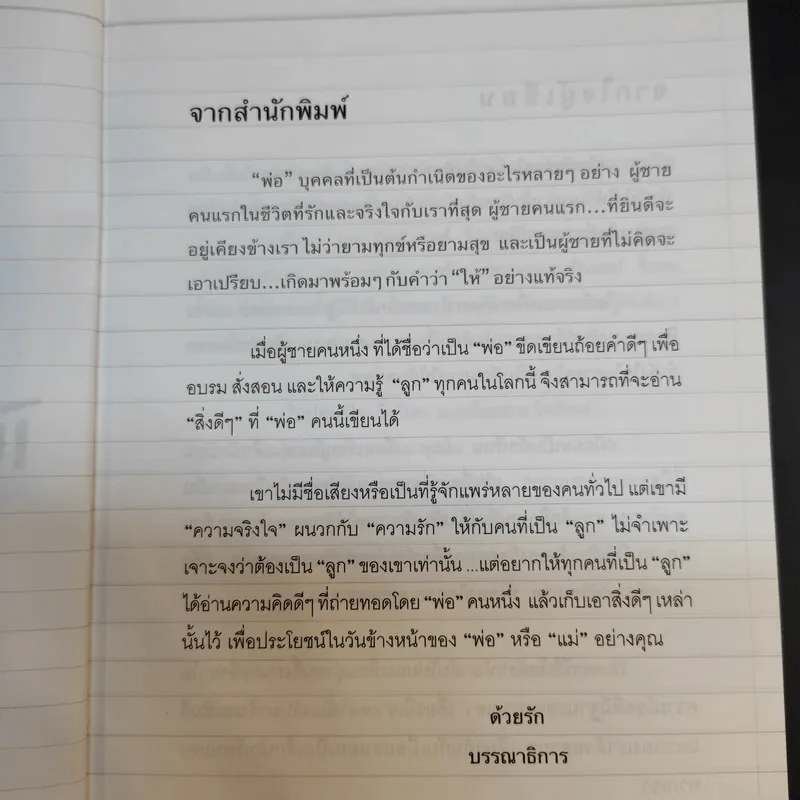 จากสำนักพิมพ์
“พ่อ” บุคคลที่เป็นต้นกำเนิดของอะไรหลายๆ อย่าง ผู้ชาย
คนแรกในชีวิตที่รักและจริงใจกับเราที่สุด ผู้ชายคนแรก...ที่ยินดีจะ
อยู่เคียงข้างเรา ไม่ว่ายามทุกข์หรือยามสุข และเป็นผู้ชายที่ไม่คิดจะ
เอาเปรียบ...เกิดมาพร้อมๆ กับคำว่า “ให้” อย่างแท้จริง
เมื่อผู้ชายคนหนึ่ง ที่ได้ชื่อว่าเป็น “พ่อ” ขีดเขียนถ้อยคำดีๆ เพื่อ
อบรม สั่งสอน และให้ความรู้ “ลูก” ทุกคนในโลกนี้ จึงสามารถที่จะอ่าน
“สิ่งดีๆ” ที่ “พ่อ” คนนี้เขียนได้
เขาไม่มีชื่อเสียงหรือเป็นที่รู้จักแพร่หลายของคนทั่วไป แต่เขามี
“ความจริงใจ” ผนวกกับ “ความรัก” ให้กับคนที่เป็น “ลูก” ไม่จำเพาะ
เจาะจงว่าต้องเป็น “ลูก” ของเขาเท่านั้น ...แต่อยากให้ทุกคนที่เป็น “ลูก”
ได้อ่านความคิดดีๆ ที่ถ่ายทอดโดย “พ่อ” คนหนึ่ง แล้วเก็บเอาสิ่งดีๆ เหล่า
นั้นไว้ เพื่อประโยชน์ในวันข้างหน้าของ “พ่อ” หรือ “แม่” อย่างคุณ
ด้วยรัก
บรรณาธิการ